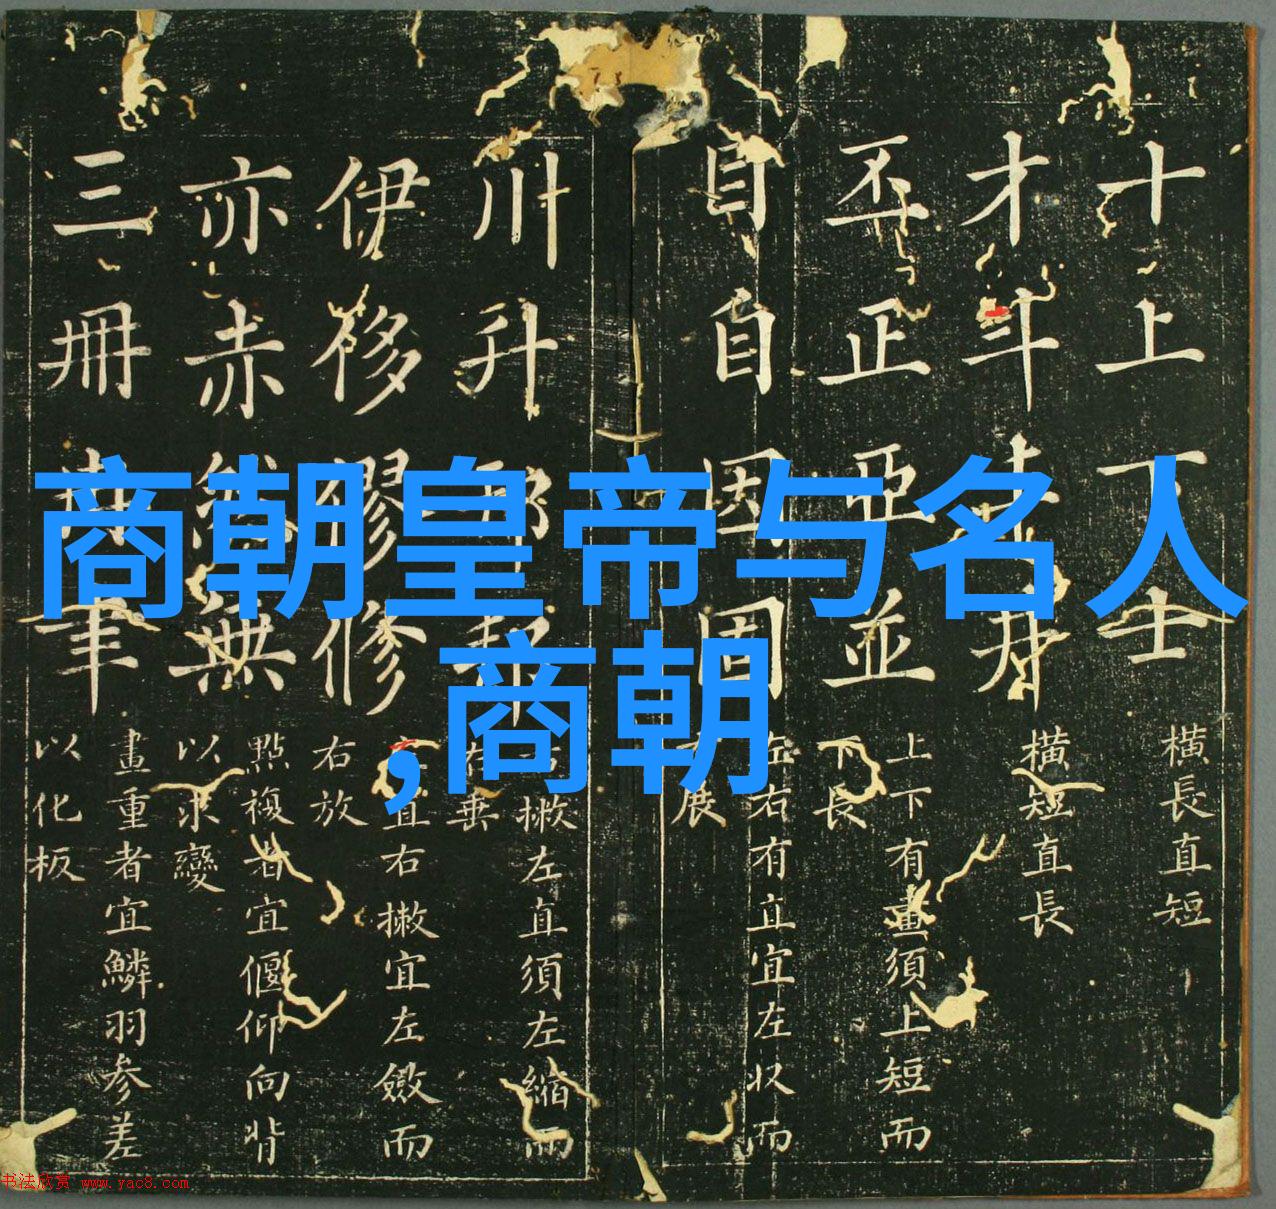 商朝皇帝与名人
,商朝
十上下士
橫長直短
才斗
橫短直長
丕正亞並
上下有畫須上短而
下長
目自因固
左右有直宜左收而
右展
川升
右撇左直須左縮而
右垂
伊侈修
左直右撇宜左斂而
右放
亦赤然無
點複者宜偃仰向背
以求變
三冊聿
畫重者宜鱗羽參差
以化板
书法欣赏 www.yac8.com